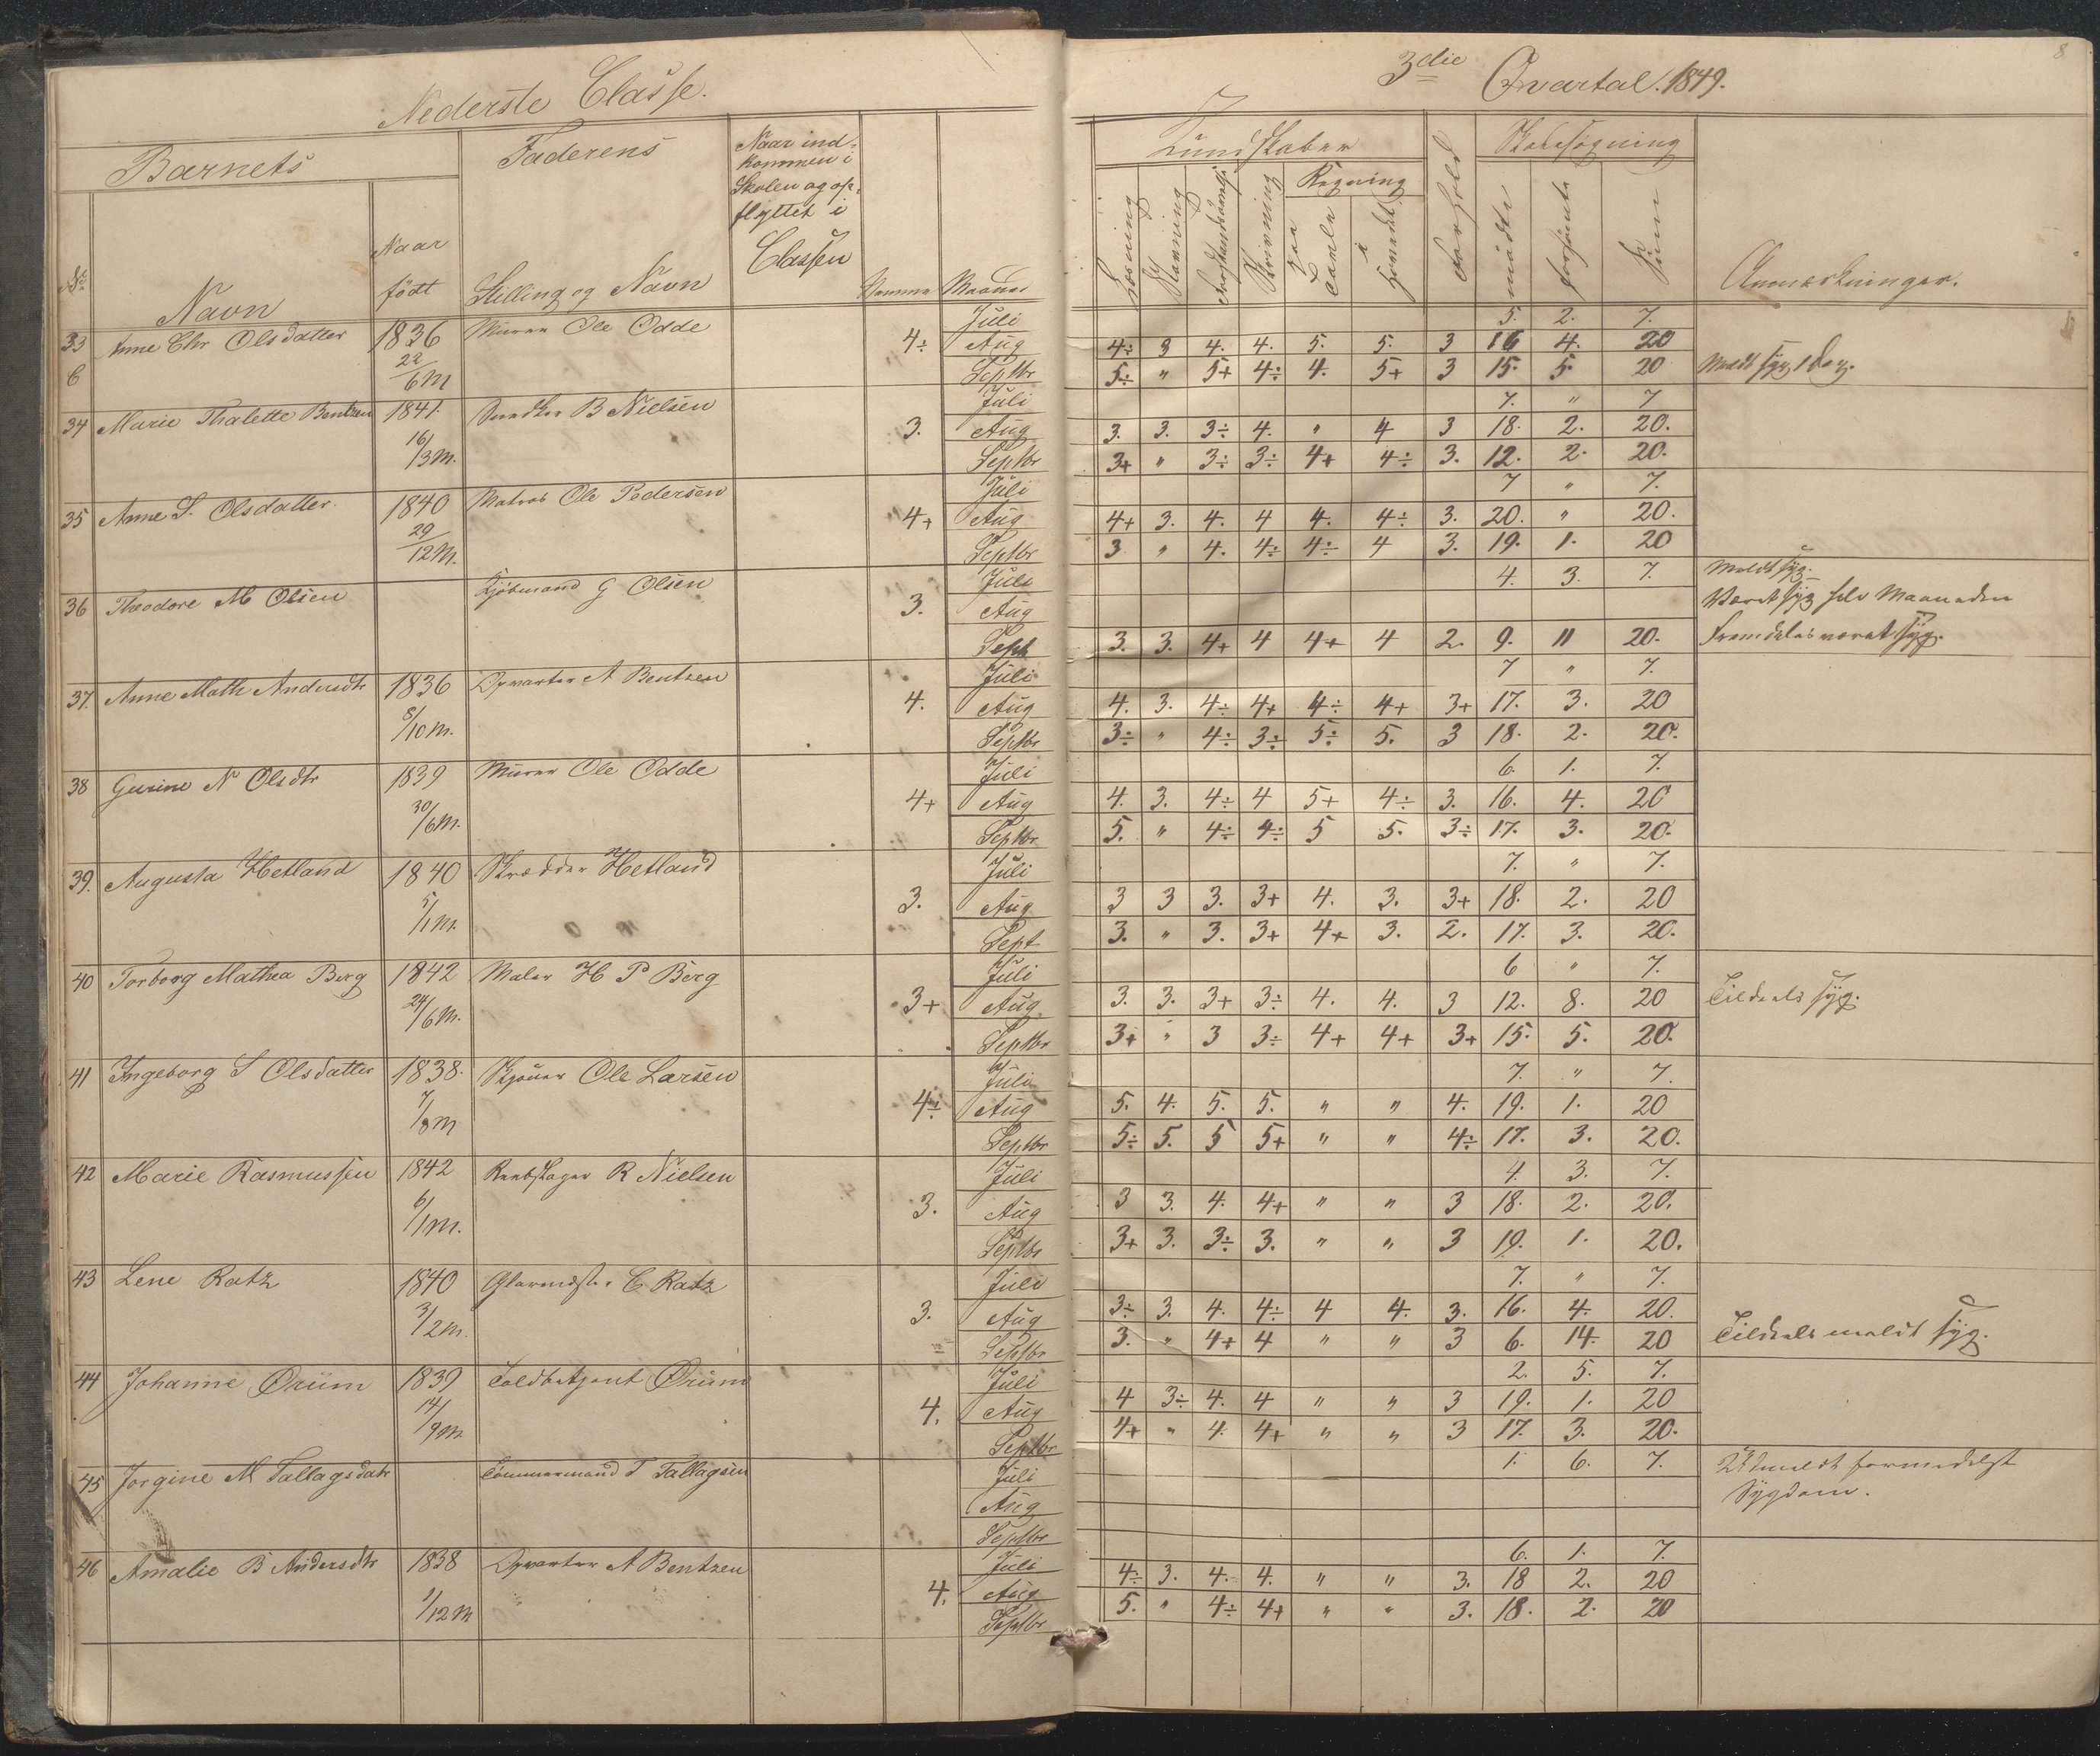 Nederste Classe.
3die Qvartal. 1849.
8
Barnets
Faderens
Naar ind-
kommen i
Skolen og op-
flyttet i
Classen
No
Navn
Naar
født
Stilling og Navn
Maaned
Kundskaber
Læsning
Skrivning
Regning
paa
Tavle
i
Hovedet
Forhold
Skolesøgning
mødte
forsømte
Sum
Anmerkninger.
33 Anne Chr Olsdatter 1836 Murer Ole Odde 4÷ Juli 5. 2. 7.
6 22/6 M Aug 4÷ 3 4. 4. 5. 5. 3 16 4. 20
Septbr 5÷ " 5+ 4÷ 4. 5+ 3 15. 5. 20 Meldt syg 1 Dag.
34 Marie Thalette Bentzen 1841. B Nielsen 3. Juli 7. " 7
16/3 M. Aug 3. 3. 3÷ 4. " 4 3 18. 2. 20.
Septbr 3+ " 3÷ 3÷ 4+ 4÷ 3. 12. 2. 20.
35 Anne S. Olsdatter 1840 Matros Ole Pedersen 4+ Juli 7 " 7.
29/12 M. Aug 4+ 3. 4. 4 4. 4÷ 3. 20. " 20.
Septbr 3 " 4. 4÷ 4÷ 4 3. 19. 1. 20
36 Theodore M Olsen Kjøbmand G Olsen 3. Juli 4. 3. 7. Meldt syg.
Aug Været syg hele Maaneden
Sept 3. 3. 4+ 4 4+ 4 2. 9. 11 20. Fremdeles været syg.
37. Anne Math Andersdtr 1836 Opvarter A Bentzen 4. Juli 7 " 7.
8/10 M. Aug 4. 3. 4÷ 4+ 4÷ 4+ 3+ 17. 3. 20
Septbr 3÷ " 4÷ 3÷ 5÷ 5. 3 18. 2. 20.
38 Gurine N Olsdtr 1839 Murer Ole Odde 4+ Juli 6. 1. 7.
30/6 M. Aug 4. 3. 4÷ 4 5+ 4÷ 3. 16. 4. 20
Septbr 5. " 4÷ 4÷ 5 5. 3÷ 17. 3. 20.
39. Augusta Hetland 1840 Skrædder Hetland 3. Juli 7. " 7.
5/1 M. Aug 3 3 3. 3+ 4. 3. 3+ 18. 2. 20
Sept 3. " 3. 3+ 4+ 3. 2. 17. 3. 20.
40 Torborg Mathea Berg 1842 Maler H P Berg 3+ Juli 6 " 7.
24/6 M. Aug 3. 3. 3+ 3÷ 4. 4. 3 12. 8. 20 Tildeels syg.
Septbr 3+ " 3 3÷ 4+ 4+ 3+ 15. 5. 20.
41 Ingeborg S Olsdatter 1838. Ole Larsen 4÷ Juli 7. " 7.
7/8 M Aug 5. 4. 5. 5. " " 4. 19. 1. 20
Septbr 5÷ 5. 5 5+ " " 4÷ 17. 3. 20.
42 Marie Rasmussen 1842 Rebslager R Nielsen 3. Juli 4. 3. 7.
6/1 M. Aug 3 3. 4. 4+ " " 3 18. 2. 20.
Septbr 3+ 3. 3÷ 3. " " 3 19. 1. 20.
43 Lene Ratz 1840 Glarmester C Ratz 3. Juli 7. " 7.
3/2 M. Aug 3÷ 3. 4. 4÷ 4 4. 3. 16. 4. 20.
Septbr 3. " 4+ 4 " " 3 6. 14. 20 Tildeels meldt syg.
44 Johanne Ørüm 1839 Toldbetjent Ørüm 4. Juli 2. 5. 7.
14/9 M Aug 4 3÷ 4. 4 " " 3 19. 1. 20
Septbr 4+ " 4. 4+ " " 3 17. 3. 20.
45 Jorgine M Tallagsdatr Tømmermand T Tallagsen Juli 1. 6. 7. Udmeldt formedelst
Aug Sygdom.
Septbr
46 Amalie B Andersdtr 1838 Opvarter A Bentzen 4. Juli 6. 1. 7.
1/12 M Aug 4÷ 3. 4. 4. " " 3. 18 2. 20
Septbr 5. " 4÷ 4+ " " 3. 18. 2. 20